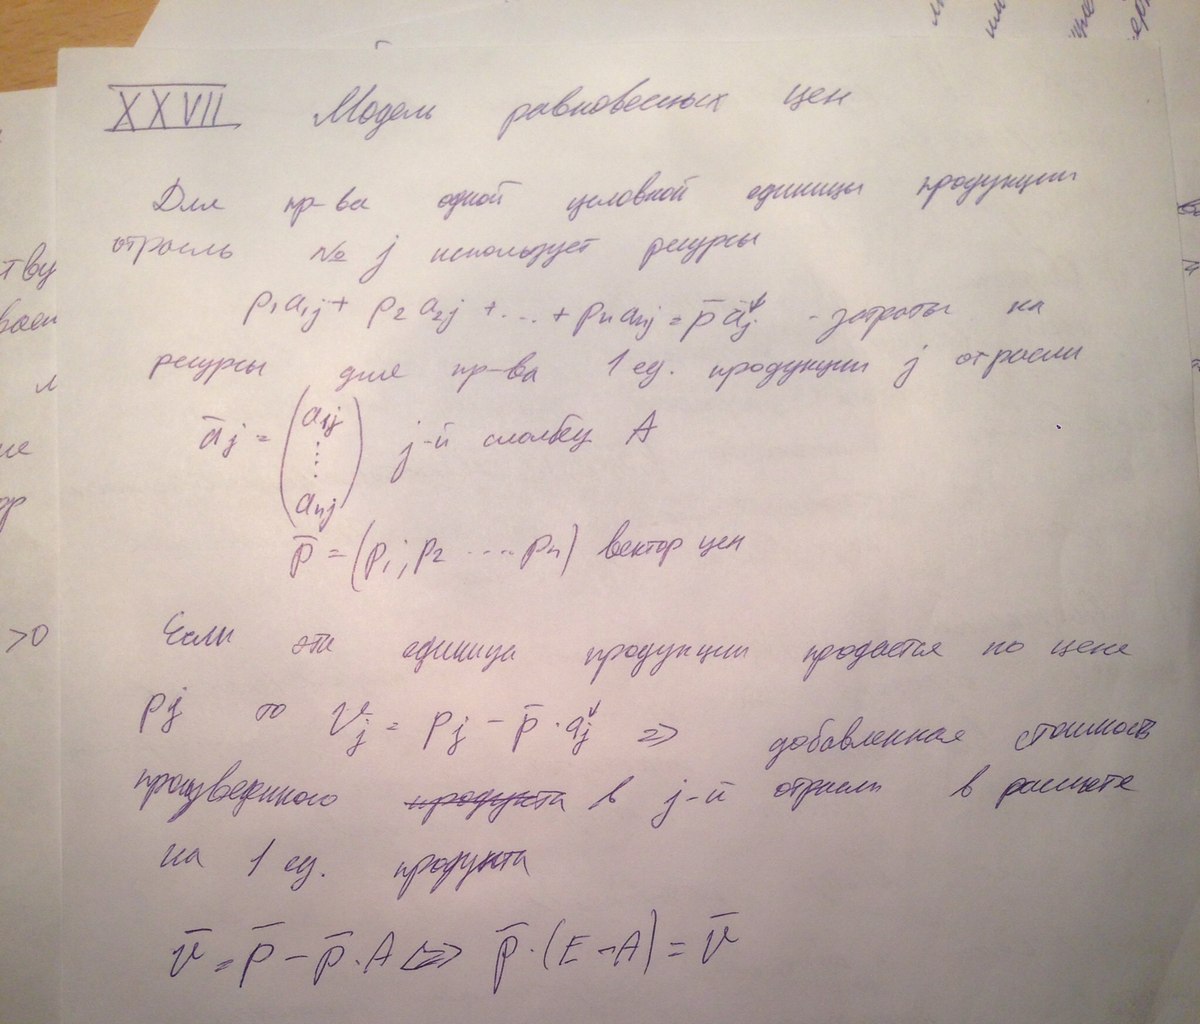 XXVII Модель равновесных цен
Для пр-ва одной условной единицы продукции
отрасль № j использует ресурсы
p₁a₁ⱼ + p₂a₂ⱼ + ... + pₙaₙⱼ = p̄ āⱼ↓ - затраты на
ресурсы для пр-ва 1 ед. продукции j отрасли
āⱼ = (a₁ⱼ ⋮ aₙⱼ) j-й столбец A
p̄ = (p₁; p₂ .... pₙ) вектор цен
Если эта единица продукции продается по цене
pⱼ то vⱼ = pⱼ - p̄ · aⱼ↓ => добавленная стоимость
произведенного продукта в j-й отрасли в расчете
на 1 ед. продукта
v̄ = p̄ - p̄ · A <=> p̄ · (E - A) = v̄
тву
>0